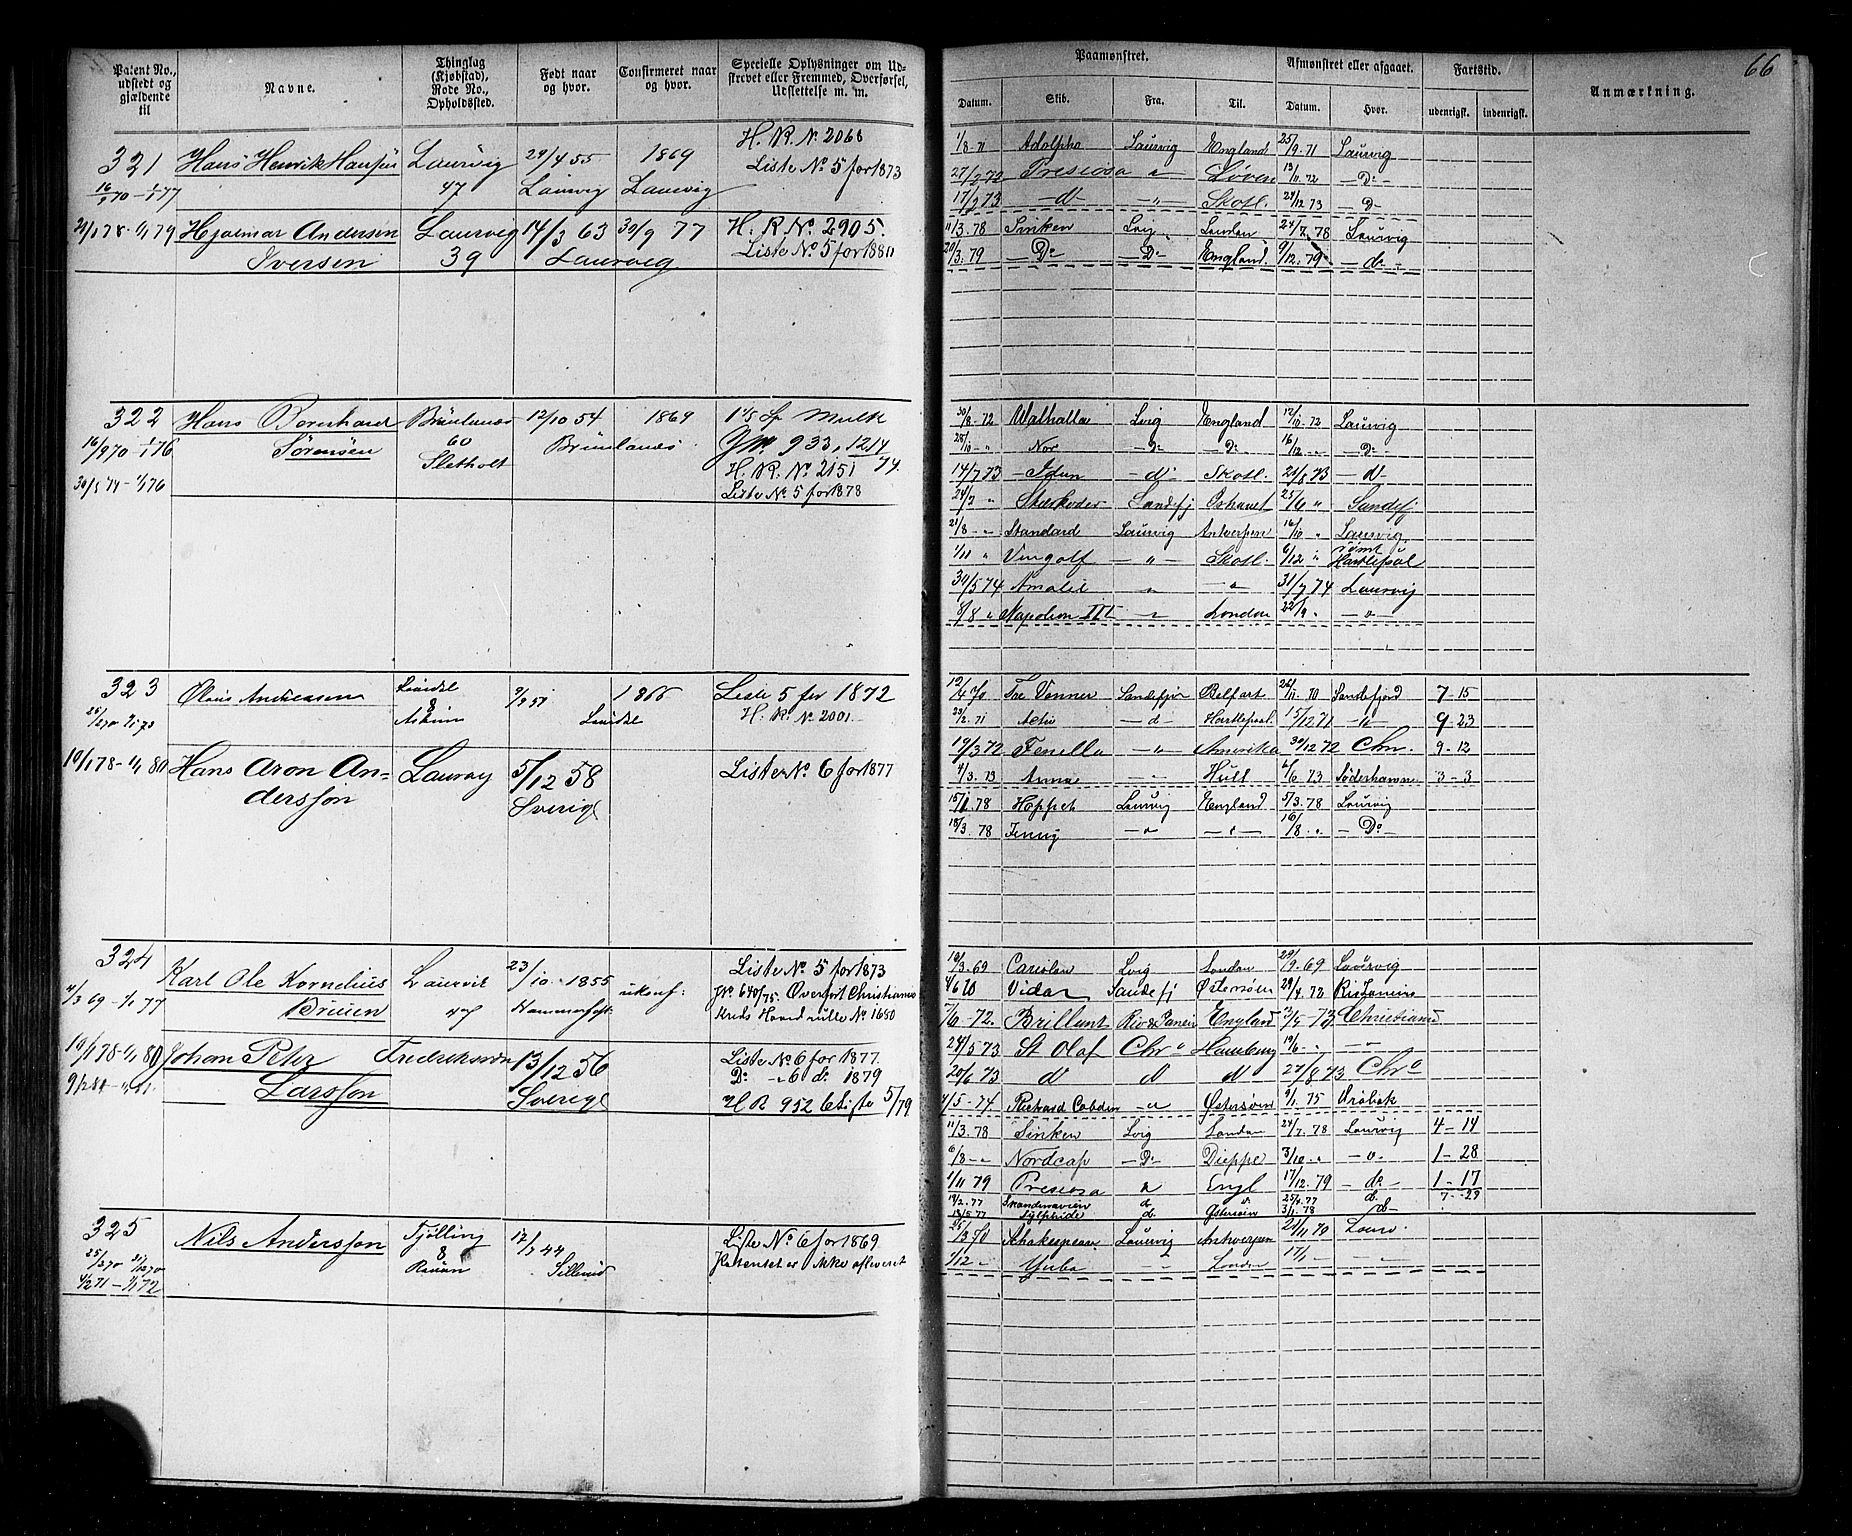 66
Patent No., udstedt og gjældende til
Navne.
Thinglag (Kjøbstad), Rode No., Opholdssted.
Født naar og hvor.
Confirmeret naar og hvor.
Specielle Oplysninger om Udskrevet eller Fremmed, Overførsel, Udslettelse m. m.
Paamønstret.
Datum. Skib. Fra. Til.
Afmønstret eller afgaaet.
Datum. Hvor.
Fartstid.
udenrigsk. indenrigsk.
Anmærkning.
321 Hans Henrik Hansen Laurvig 29/4 55 1869 H. R. N. 2068
16/9 70 - 1/1 77 47 Laurvig Laurvig Liste No 5 for 1873
1/8 71 Adolpha Laurvig England 25/9 71 Laurvig
27/2 72 Presiosa " 13/11 72 Do
17/2 73 d " Skotl. 24/12 73 D
Hjalmar Andersen Laurvig 14/3 63 30/9 77 H. R. No. 2905.
Iversen 39 Laurvig Liste No 5 for 1880
11/3. 78 Sirken Lvig London 24/7. 78 Laurvig
20/3. 79 Do Do England. 9/12. 79 do
322 Hans Bernhard Brunlanæs 12/10 54 1869
16/9 70 - 1/1 76 Sørensen 60 Brunlanæs 933, 1214/74.
30/5 74 - 1/1 76 Sletholt H. R. No. 2151
Liste No 5 for 1878
30/8. 72 Walhalla Lvig England 12/10. 72 Laurvig
28/10 " Nor Do Do 16/12 " Do
14/7 73 Idun do Skotl. 21/8 73 d
24/2 " Sandefj Ishavet 25/6 " Sandefj
21/8 " Standard Laurvig Antverpen 16/10 " Laurvig
1/11 " Vingolf " Skotl. 6/12 " rømt Hartlepool
30/5 74 Amalie " " 31/7 74 Laurvig
8/8 " Napoleon III " London 22/9 " "
323 Olaus Andreassen 1866 Liste 5 for 1872
8 H. R. No. 2001.
12/4 70 Tre Venner Sandefjor Belfast 26/11. 70 Sandefjord 7-15
23/2. 71 Activ d Hartlepool. 15/12 71 " 9-23
19/3 72 Fenella " Amerika 30/12 72 Chr. 9-12
4/3. 73 Anna " Hull 6/6 73 Søderhamn 3-3
10/1 78 - 1/1 80 Hans Aron An- Laurvig 5/12 58 Liste No 6 for 1877
dersson Sverige
15/1. 78 Hoppet Laurvig England 5/3. 78 Laurvig
18/3. 78 Jenny " " 16/8 " Do
324 Karl Ole Kornelius Laurvik 23/10. 1855 ukonf. Liste No 5 for 1873
4/3 69 - 1/1 77 Bruun 47 Hammerfest JNo 640/75. Overført Christiania
Kreds Hovedrulle No 1680
18/3. 69 Lvig London 29/9. 69 Laurvig
4/6 70 Vidar Sandefj Østersøen 28/4. 72
7/6 - 72. Brillant Rio de Janeiro England 73 Christiania
24/5 73 St Olaf Chra Hamburg 19/6 " "
20/6 73 d d d 27/8 73 Chra
4/5 - 74 Richard Cobden " Østersøen 9/1. 75 Drøbak
10/1 78 - 1/1 80 Johan Peter Fredriksson 13/12 56 Liste No 6 for 1877.
Larsson Sverige Do " 6 do 1879
H R 952 Liste 5/79
11/3. 78 Sirken Lvig London 24/7. 78 Laurvig 4-14
6/8 " Nordcap Do Dieppe 3/10 " " 1-28
1/11 79 Presiosa " Engl 17/12. 79 do 1-17
14/2. 77 Skandinavien d d 25/4. 77 d. 7-29
13/5 77 Sylphide d. Østersøen 3/11. 78 d
325 Nils Andersson Tjølling 17/3 44 Liste No 6 for 1869
8 Patentet er ikke afleveret
4/2 71 - 1/1 72
Shakespeare Laurvig Antverpen 21/11 70 Laurv.
1/12 " Yuba " London 17/1 " "